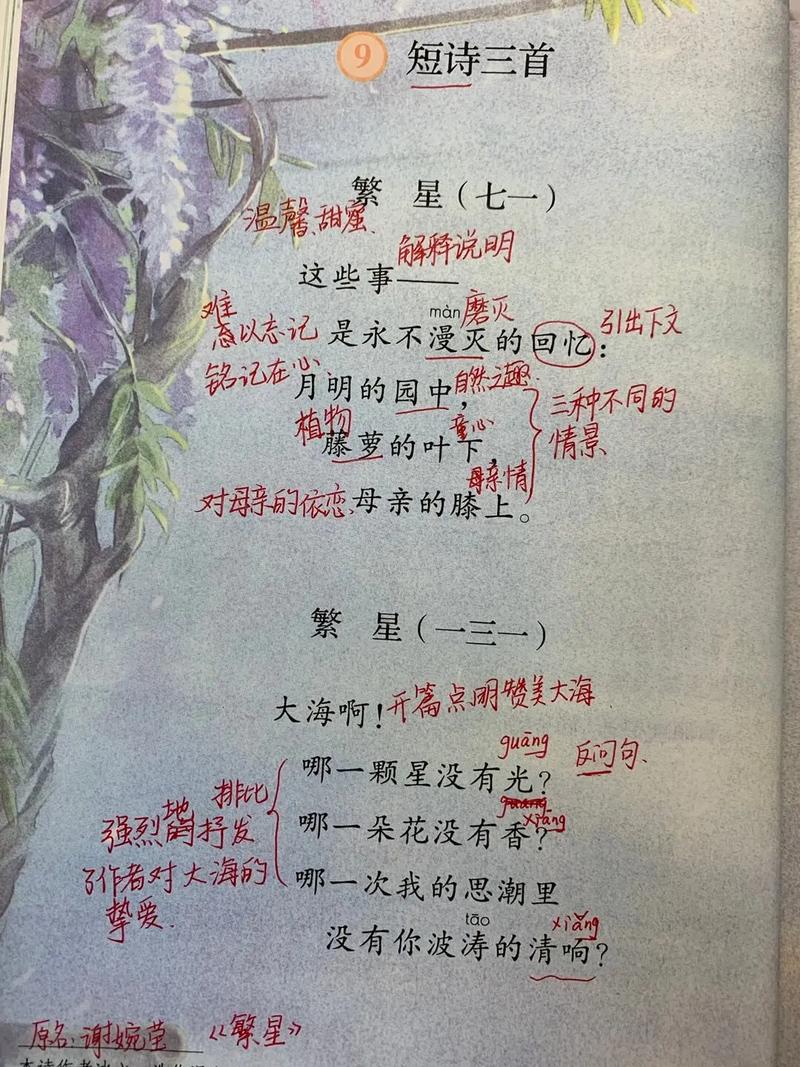 9 短诗三首
繁 星（七一）
温馨、甜蜜.
解释说明
这些事——
难 màn 磨灭
忘以忘记 是永不漫灭的回忆： 引出下文
铭记在心、月明的园中， 自然之趣. 三种不同的
植物 童心 情景
藤萝的叶下，
母亲情
对母亲的依恋、母亲的膝上。
繁 星（一三一）
大海啊！开篇点明赞美大海
guāng
哪一颗星没有光？ 反问句、
排比 guāng xiāng
强烈地抒发 哪一朵花没有香？
了作者对大海的 哪一次我的思潮里
挚爱. tāo xiǎng
没有你波涛的清响？
原名：谢婉莹 《繁星》